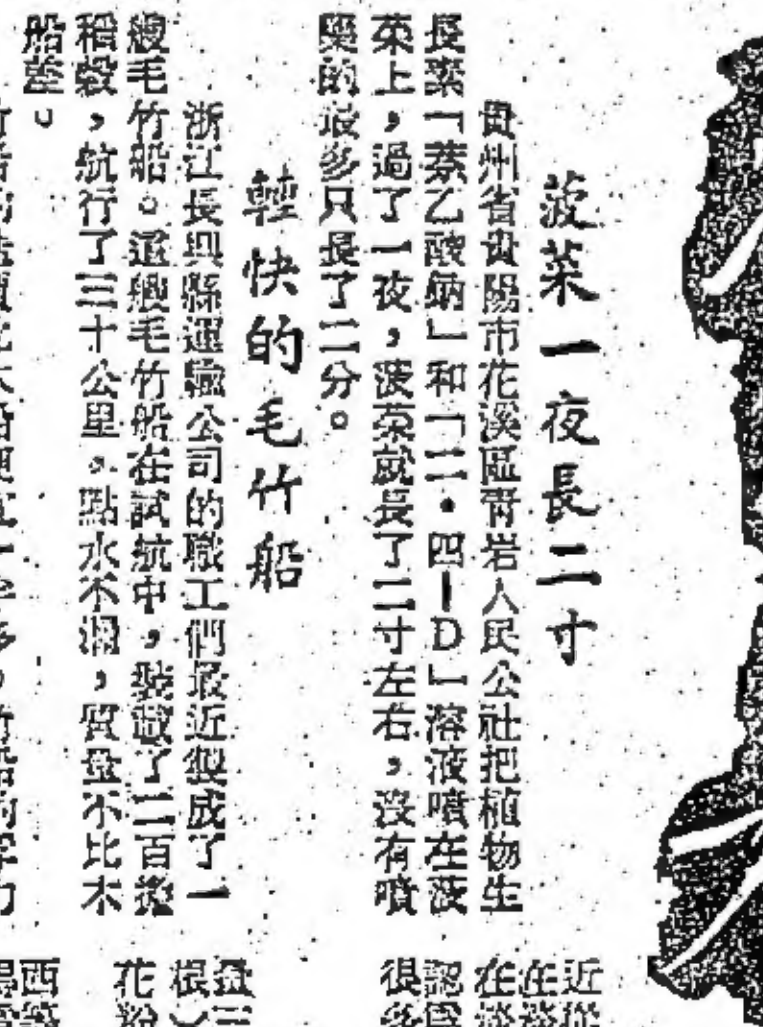 菠菜一夜長二寸
貴州省貴陽市花溪區青岩人民公社把植物生
長素「萘乙酸鈉」和「二·四—D」溶液噴在菠
菜上，過了一夜，菠菜就長了二寸左右，沒有噴
藥的最多只長了二分。
輕快的毛竹船
浙江長興縣運輸公司的職工們最近製成了一
艘毛竹船。這艘毛竹船在試航中，裝載了二百擔
稻穀，航行了三十公里，點水不漏，質量不比木
船差。
近從
在談
認爲
很多
盈三
根）
花粉